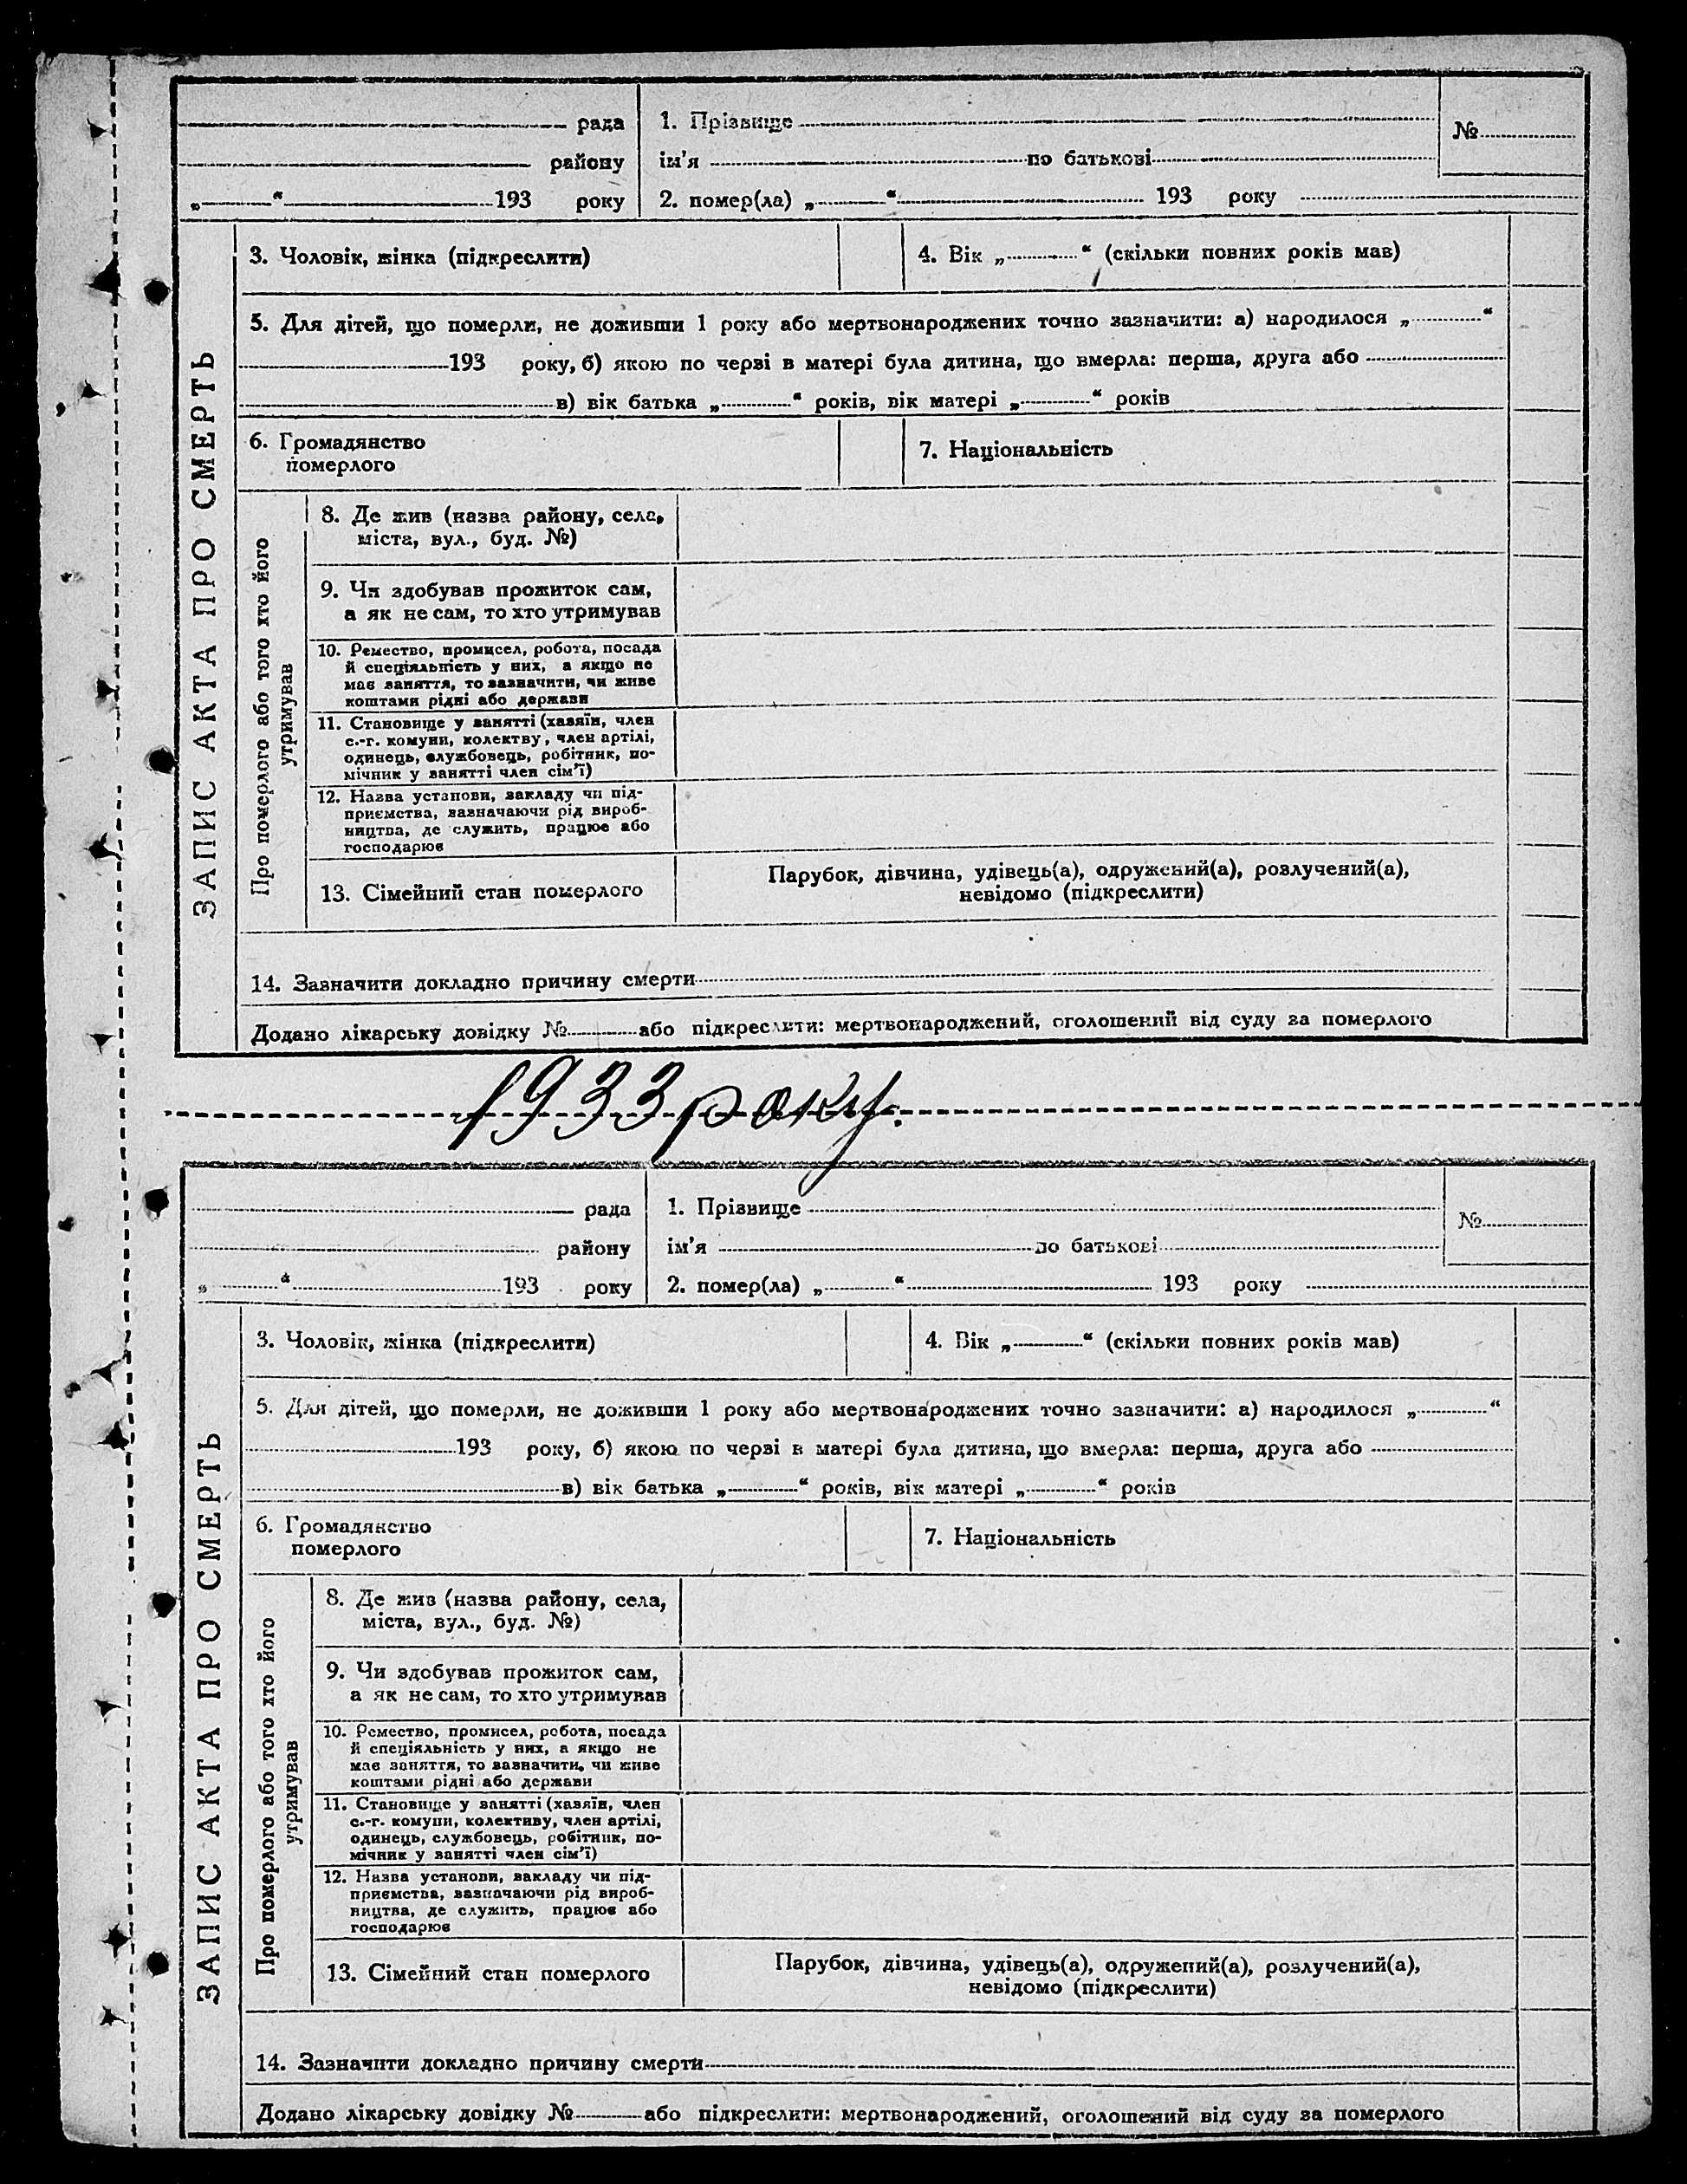 рада
району
„ “ 193 року
1. Прізвище
ім'я по батькові
2. помер(ла) „ “ 193 року
№
ЗАПИС АКТА ПРО СМЕРТЬ
3. Чоловік, жінка (підкреслити)
4. Вік „ “ (скільки повних років мав)
5. Для дітей, що померли, не доживши 1 року або мертвонароджених точно зазначити: а) народилося „ “
193 року, б) якою по черві в матері була дитина, що вмерла: перша, друга або
в) вік батька „ “ років, вік матері „ “ років
6. Громадянство
померлого
7. Національність
Про померлого або того хто його
утримував
8. Де жив (назва району, села,
міста, вул., буд. №)
9. Чи здобував прожиток сам,
а як не сам, то хто утримував
10. Ремество, промисел, робота, посада
й спеціяльність у них, а якщо не
має заняття, то зазначити, чи живе
коштами рідні або держави
11. Становище у занятті (хазяїн, член
с.-г. комуни, колектву, член артілі,
одинець, службовець, робітник, по-
мічник у занятті член сім'ї)
12. Назва установи, закладу чи під-
приємства, зазначаючи рід вироб-
ництва, де служить, працює або
господарює
13. Сімейний стан померлого
Парубок, дівчина, удівець(а), одружений(а), розлучений(а),
невідомо (підкреслити)
14. Зазначити докладно причину смерти
Додано лікарську довідку № або підкреслити: мертвонароджений, оголошений від суду за померлого
1933 року.
рада
району
„ “ 193 року
1. Прізвище
ім'я по батькові
2. помер(ла) „ “ 193 року
№
ЗАПИС АКТА ПРО СМЕРТЬ
3. Чоловік, жінка (підкреслити)
4. Вік „ “ (скільки повних років мав)
5. Для дітей, що померли, не доживши 1 року або мертвонароджених точно зазначити: а) народилося „ “
193 року, б) якою по черві в матері була дитина, що вмерла: перша, друга або
в) вік батька „ “ років, вік матері „ “ років
6. Громадянство
померлого
7. Національність
Про померлого або того хто його
утримував
8. Де жив (назва району, села,
міста, вул., буд. №)
9. Чи здобував прожиток сам,
а як не сам, то хто утримував
10. Ремество, промисел, робота, посада
й спеціяльність у них, а якщо не
має заняття, то зазначити, чи живе
коштами рідні або держави
11. Становище у занятті (хазяїн, член
с.-г. комуни, колективу, член артілі,
одинець, службовець, робітник, по-
мічник у занятті член сім'ї)
12. Назва установи, закладу чи під-
приємства, зазначаючи рід вироб-
ництва, де служить, працює або
господарює
13. Сімейний стан померлого
Парубок, дівчина, удівець(а), одружений(а), розлучений(а),
невідомо (підкреслити)
14. Зазначити докладно причину смерти
Додано лікарську довідку № або підкреслити: мертвонароджений, оголошений від суду за померлого